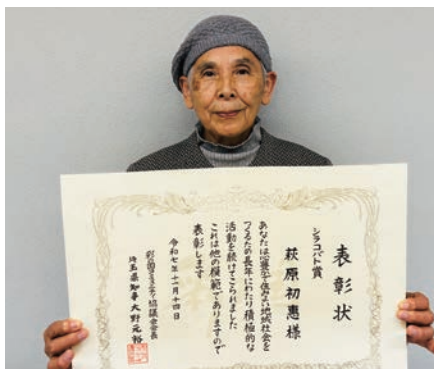 表彰状
シラコバト賞
萩原初惠様
あなたは心豊かで住みよい地域社会を
つくるため長年にわたり積極的な
活動を続けてこられました
これは他の模範でありますので
表彰します
令和七年十一月十四日
彩の国コミュニティ協議会会長
埼玉県知事 大野元裕